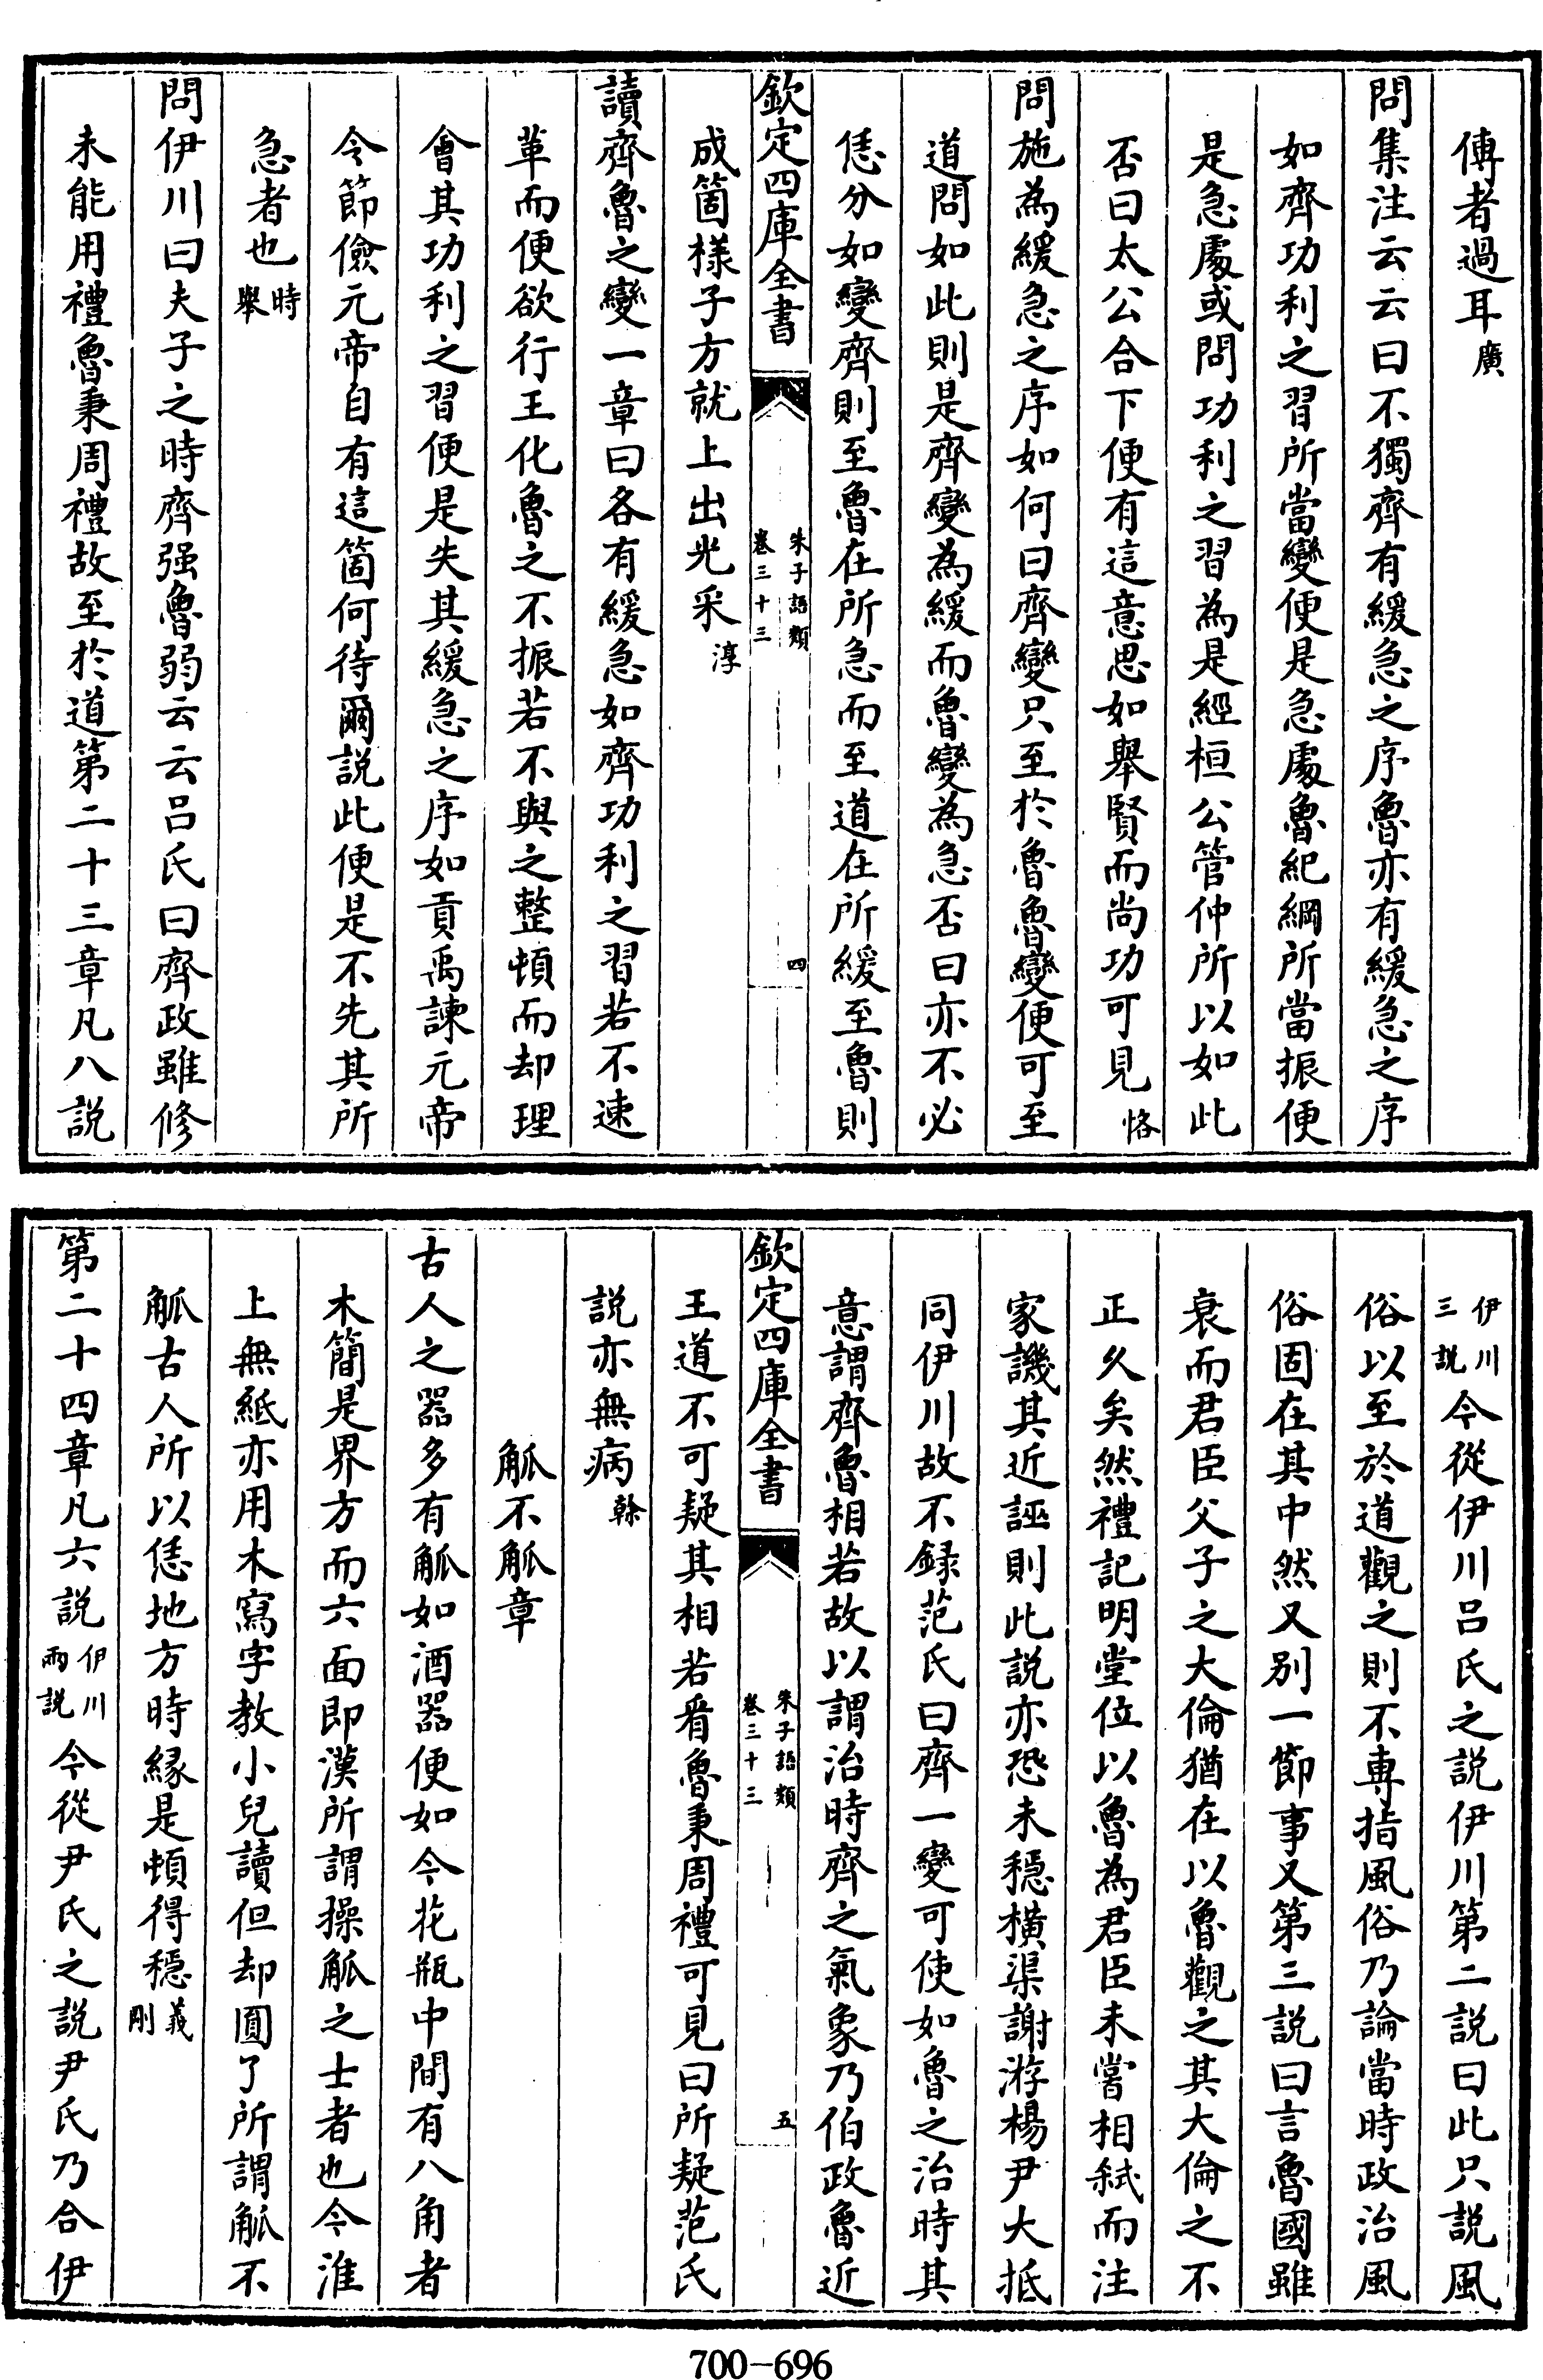 傳者過耳廣
問集注云云曰不獨齊有緩急之序魯亦有緩急之序
如齊功利之習所當變便是急處魯紀綱所當振便
是急處或問功利之習為是經桓公管仲所以如此
否曰太公合下便有這意思如舉賢而尚功可見恪
問施為緩急之序如何曰齊變只至於魯魯變便可至
道問如此則是齊變為緩而魯變為急否曰亦不必
恁分如變齊則至魯在所急而至道在所緩至魯則
欽定四庫全書
朱子語類
卷三十三
四
成箇樣子方就上出光采淳
讀齊魯之變一章曰各有緩急如齊功利之習若不速
革而便欲行王化魯之不振若不與之整頓而却理
會其功利之習便是失其緩急之序如貢禹諫元帝
令節儉元帝自有這箇何待爾説此便是不先其所
急者也時舉
問伊川曰夫子之時齊强魯弱云云吕氏曰齊政雖修
未能用禮魯秉周禮故至於道第二十三章凡八説
伊川三説今從伊川吕氏之説伊川第二説曰此只説風
俗以至於道觀之則不專指風俗乃論當時政治風
俗固在其中然又别一節事又第三説曰言魯國雖
衰而君臣父子之大倫猶在以魯觀之其大倫之不
正久矣然禮記明堂位以魯為君臣未嘗相弑而注
家譏其近誣則此説亦恐未穩横渠謝游楊尹大抵
同伊川故不録范氏曰齊一變可使如魯之治時其
意謂齊魯相若故以謂治時齊之氣象乃伯政魯近
欽定四庫全書
朱子語類
卷三十三
五
王道不可疑其相若看魯秉周禮可見曰所疑范氏
説亦無病榦
觚不觚章
古人之器多有觚如酒器便如今花瓶中間有八角者
木簡是界方而六面即漢所謂操觚之士者也今淮
上無紙亦用木寫字教小兒讀但却圓了所謂觚不
觚古人所以恁地方時緣是頓得穩義剛
第二十四章凡六説伊川兩説今從尹氏之説尹氏乃合伊
700-696